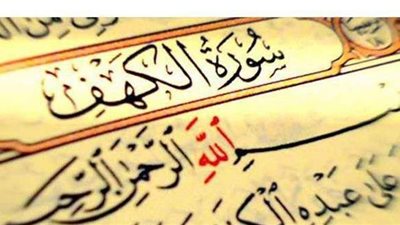 سُورَةُ الكَهْفِ
بِسْمِ ٱللَّهِ ٱلرَّحْمَٰنِ ٱلرَّحِيمِ
عَلَىٰ عَبْدِهِ